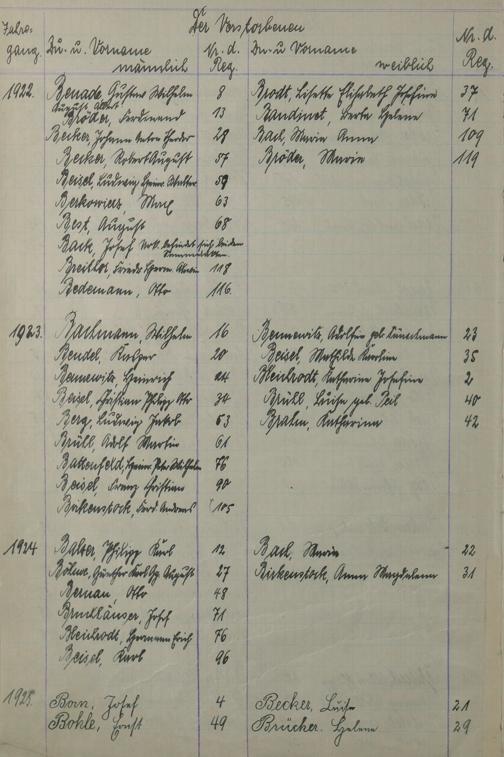 Jahr- Der Verstorbenen
gang. Zu- u. Vorname Nr. d. Zu- u Vorname Nr. d.
männlich Reg. weiblich Reg.
1922. Gustav Wilhelm 8 Brodt, Lisette Elisabeth Josefine 37
August Albert
Bröder, Ferdinand 13 Bandinet, Berta Helene 71
Becker, Johann Anton Theodor 28 Bach, Maria Anna 109
Becker, Robert August 57 Bröder, Maria 119
Beisel, Ludwig Heinr. Walter 59
Berkowicz, 63
Best, August 68
Back, Josef befindet sich bei den
Breitlot, Herm. 118
Bedemann, Otto 116.
1923. Bachmann, Wilhelm 16 Bennewitz, geb 23
Bendel, Kaspar 20 Beisel, Mathilde Karoline 35
Bennewitz, Heinrich 24 Bleichrodt, Katharina Josefine 2
Beisel, Christian Philipp Otto 34 Brüll, Luise geb. 40
Berg, Ludwig Jakob 53 Brahm, Katharina 42
Brüll, Adolf Martin 61
Battenfeld, Heinr. Peter Wilhelm 76
Beisel, Franz Christian 90
Birkenstock, Ferd Andreas 105
1924 Balter, Philipp Karl 12 Bach, Maria 22
Böhme, Günther Karl August 27 Birkenstock, Anna Magdalena 31
Bernau, Otto 48
Josef 71
Bleichrodt, Hermann Erich 76
Beisel, Karl 96
1925. Born, Josef 4 Becker, Luise 21
Bohle, Ernst 49 Brücher. Helene 29